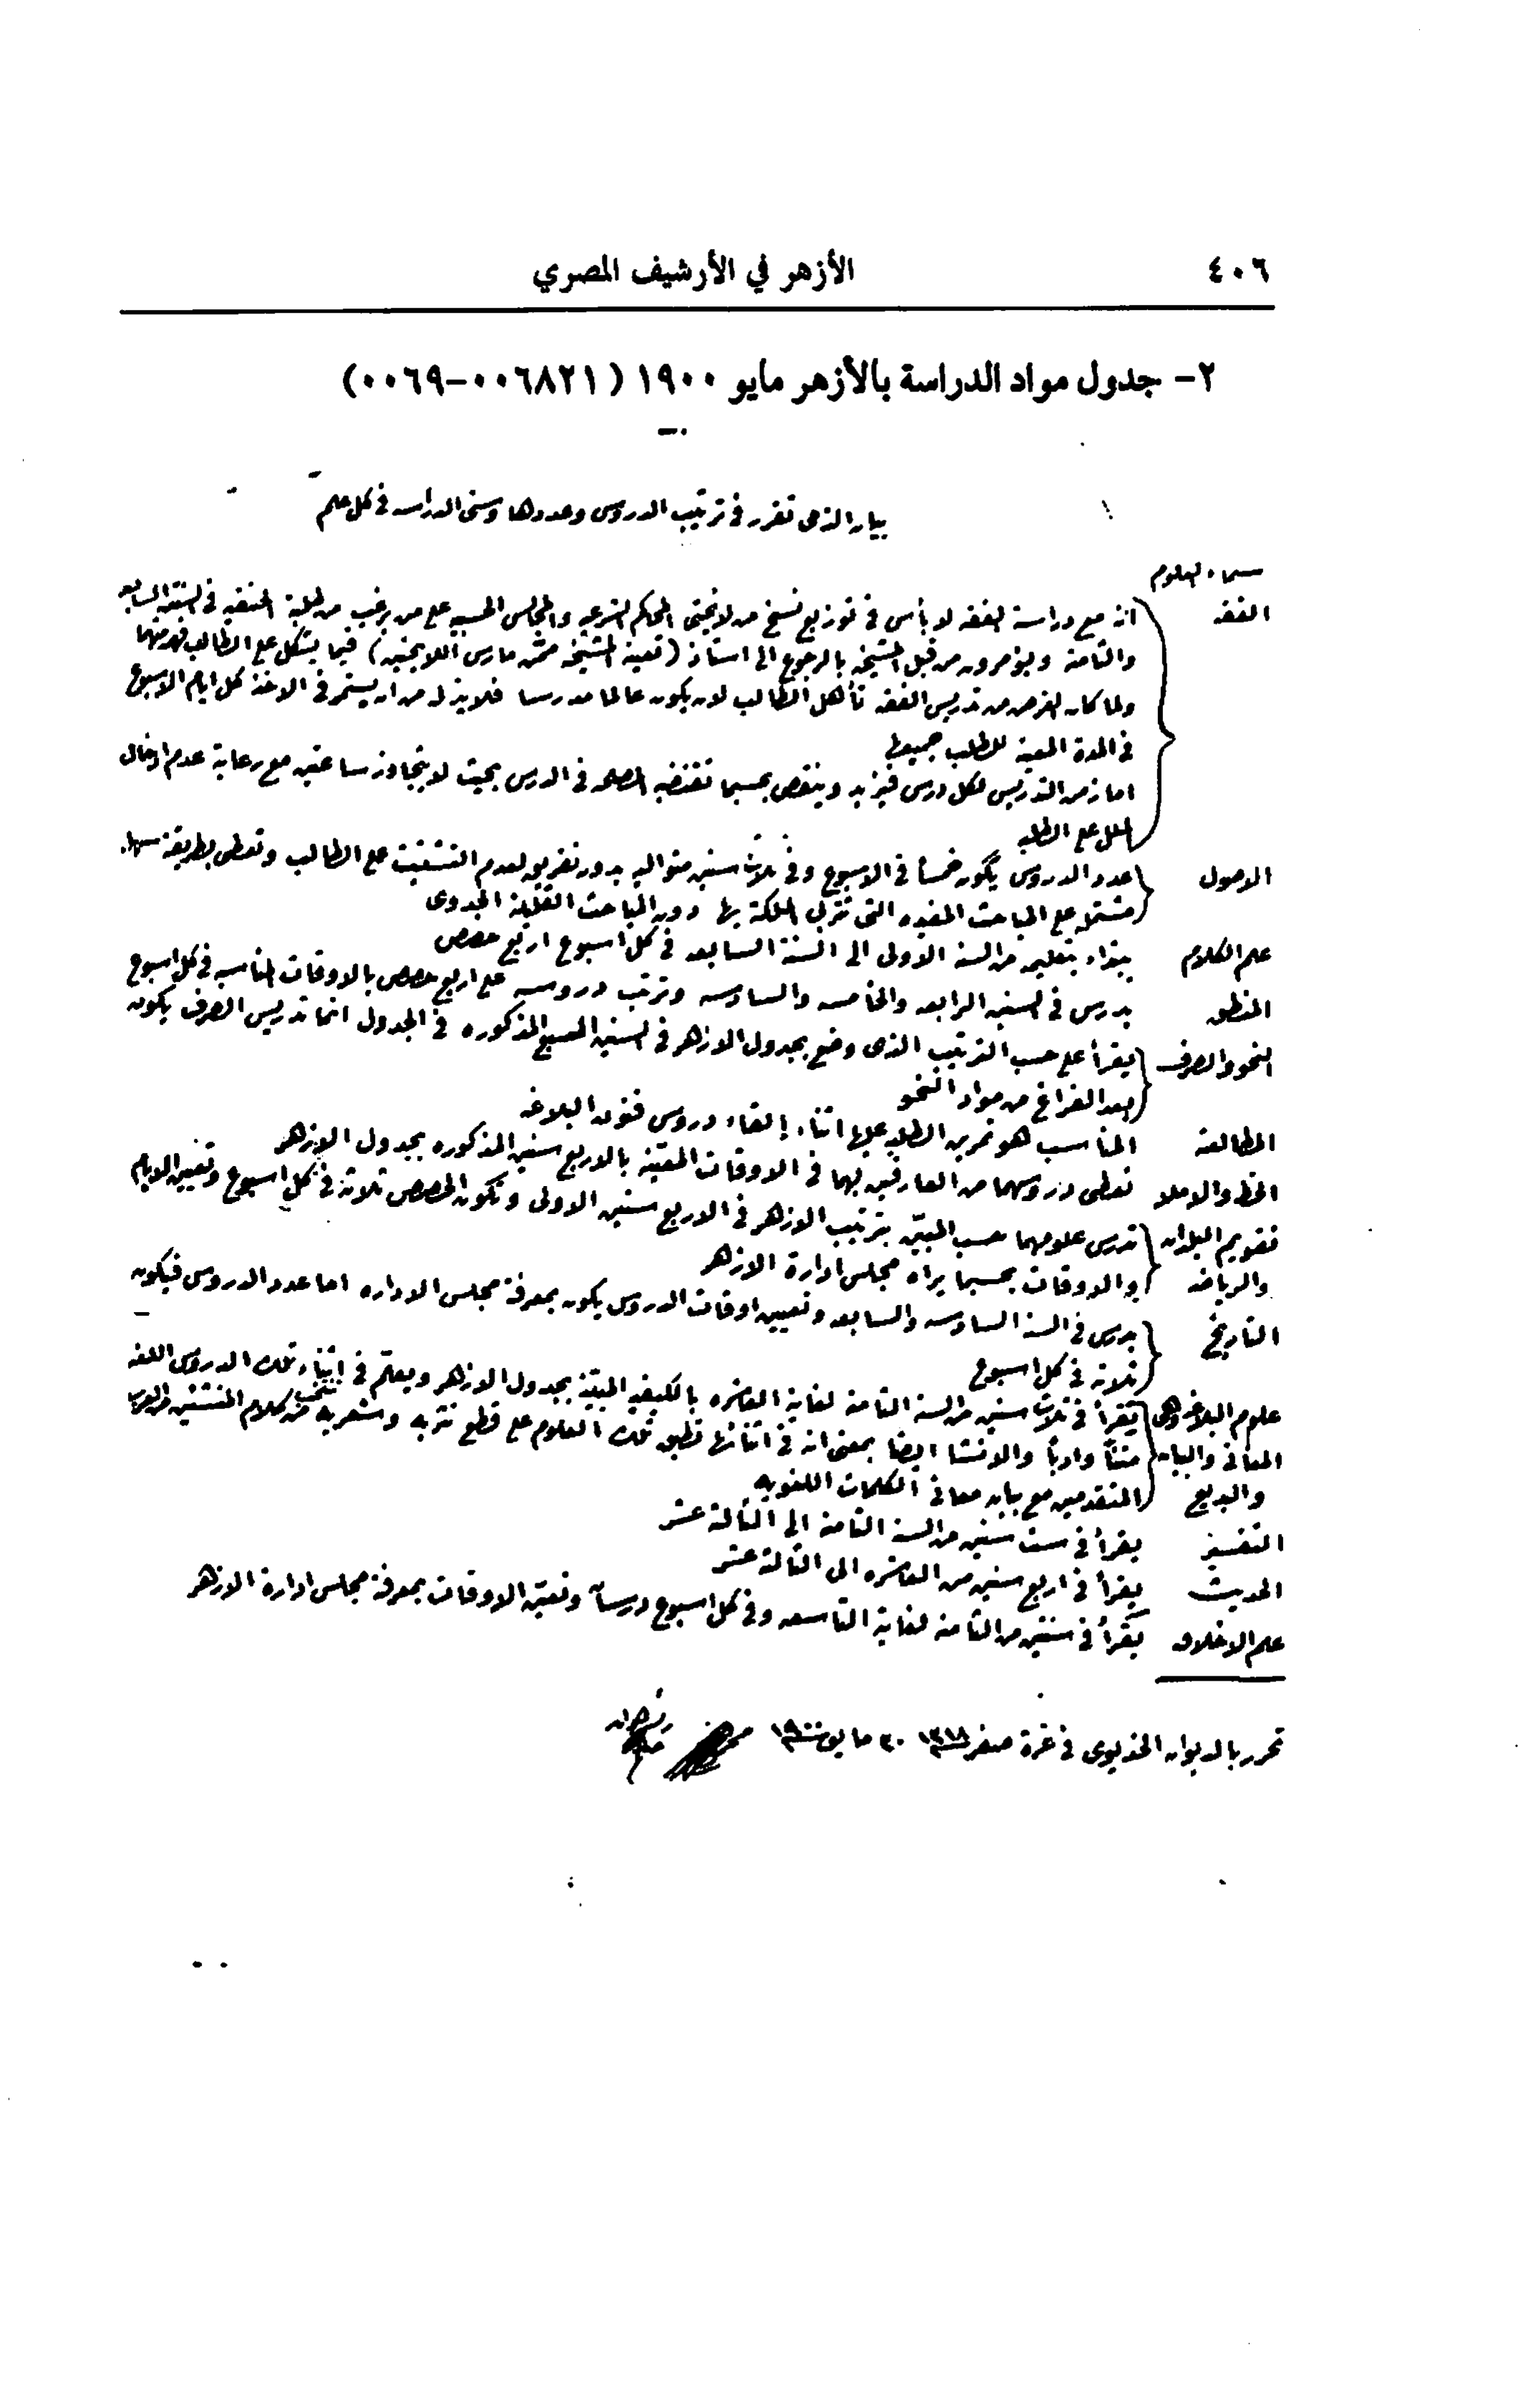 ٤٠٦
الأزهر في الأرشيف المصري
٢- جدول مواد الدراسة بالأزهر مايو ١٩٠٠ (٠٠٦٨٢١-٠٠٦٩)
بيان الذى تقرر فى ترتيب الدروس وعددها وسنى الدراسه فى كل علم
العلوم
الفقه
انه مع دراسة الفقه لا بأس فى توزيع نسخ من لائحتى المحاكم الشرعيه والمجالس الحسبيه على من يرغب من طلبة الحنفيه فى السنتين السابعه
والثامنه ويؤمرون من قبل المشيخه بالرجوع الى استاذ (تعينه المشيخه ممن مارس اللائحتين) فيما يشكل على الطالب فهمه منهما
ولما كان الغرض من تدريس الفقه تأهل الطالب لان يكون عالما مدرسا فلا بد له من ان يستمر فى الاخذ كل ايام الاسبوع
فى المدة المعينه للطلب جميعها
اما زمن التدريس لكل درس فيزيد وينقص بحسبما تقتضيه المصلحه فى الدرس بحيث لا يتجاوز ساعتين مع رعاية عدم ادخال
الملل على الطلبه
الاصول
عدد الدروس يكون خمساً فى الاسبوع وفى ثلاث سنين متواليه بدون تفريق لعدم التشتيت على الطالب وتعطى بطريقة سهله
مشتمله على المباحث المفيده التى تتربى الملكة بها دون المباحث القليلة الجدوى
علم الكلام يبتداء بتعليمه من السنه الاولى الى السنة السابعه فى كل اسبوع اربع حصص
المنطق يدرس فى السنين الرابعه والخامسه والسادسه وترتب دروسه على اربع حصص بالاوقات المناسبه فى كل اسبوع
النحو والصرف
يقرأ على حسب الترتيب الذى وضع بجدول الازهر فى السنين السبع المذكوره فى الجدول انما تدريس الصرف يكون
بعد الفراغ من مواد النحو
المطالعه المناسب هو تمرين الطلبه عليها اثناء إلقاء دروس فنون البلاغه
الخط والاملا تعطى دروسهما من العارفين بهما فى الاوقات المعينه بالاربع سنين المذكوره بجدول الازهر
تقويم البلدان تدرس علومهما حسب المبين بترتيب الازهر فى الاربع سنين الاولى وتكون الحصص ثلاثة فى كل اسبوع وتعيين الايام
والرياضه والاوقات بحسبما يراه مجلس ادارة الازهر
التاريخ
يدرس فى السنه السادسه والسابعه وتعيين اوقات الدروس يكون بمعرفة مجلس الاداره اما عدد الدروس فيكون
ثلاثة فى كل اسبوع
علوم البلاغه وهى يقرأ فى ثلاث سنين من السنة الثامنه لغاية العاشره بالكيفيه المبينه بجدول الازهر ويعلم فى اثناء تلك الدروس اللغه
المعانى والبيان متناً وادباً والانشا ايضا بمعنى انه فى اثنائها تطبق تلك العلوم على قطع نثريه وشعريه تنتخب من كلام المنشئين من العرب
والبديع المتقدمين مع بيان معانى الكلمات اللغويه
التفسير يقرأ فى ست سنين من السنة الثامنه الى الثالثة عشر
الحديث يقرأ فى اربع سنين من العاشره الى الثالثة عشر
علم الاخلاق يقرأ فى سنتين من الثامنه لغاية التاسعه وفى كل اسبوع درساً وتعين الاوقات بمعرفة مجلس ادارة الازهر
تحرر بالديوان الخديوى فى غرة صفر ١٣١٨ ٣٠ مايو سنة ١٩٠٠